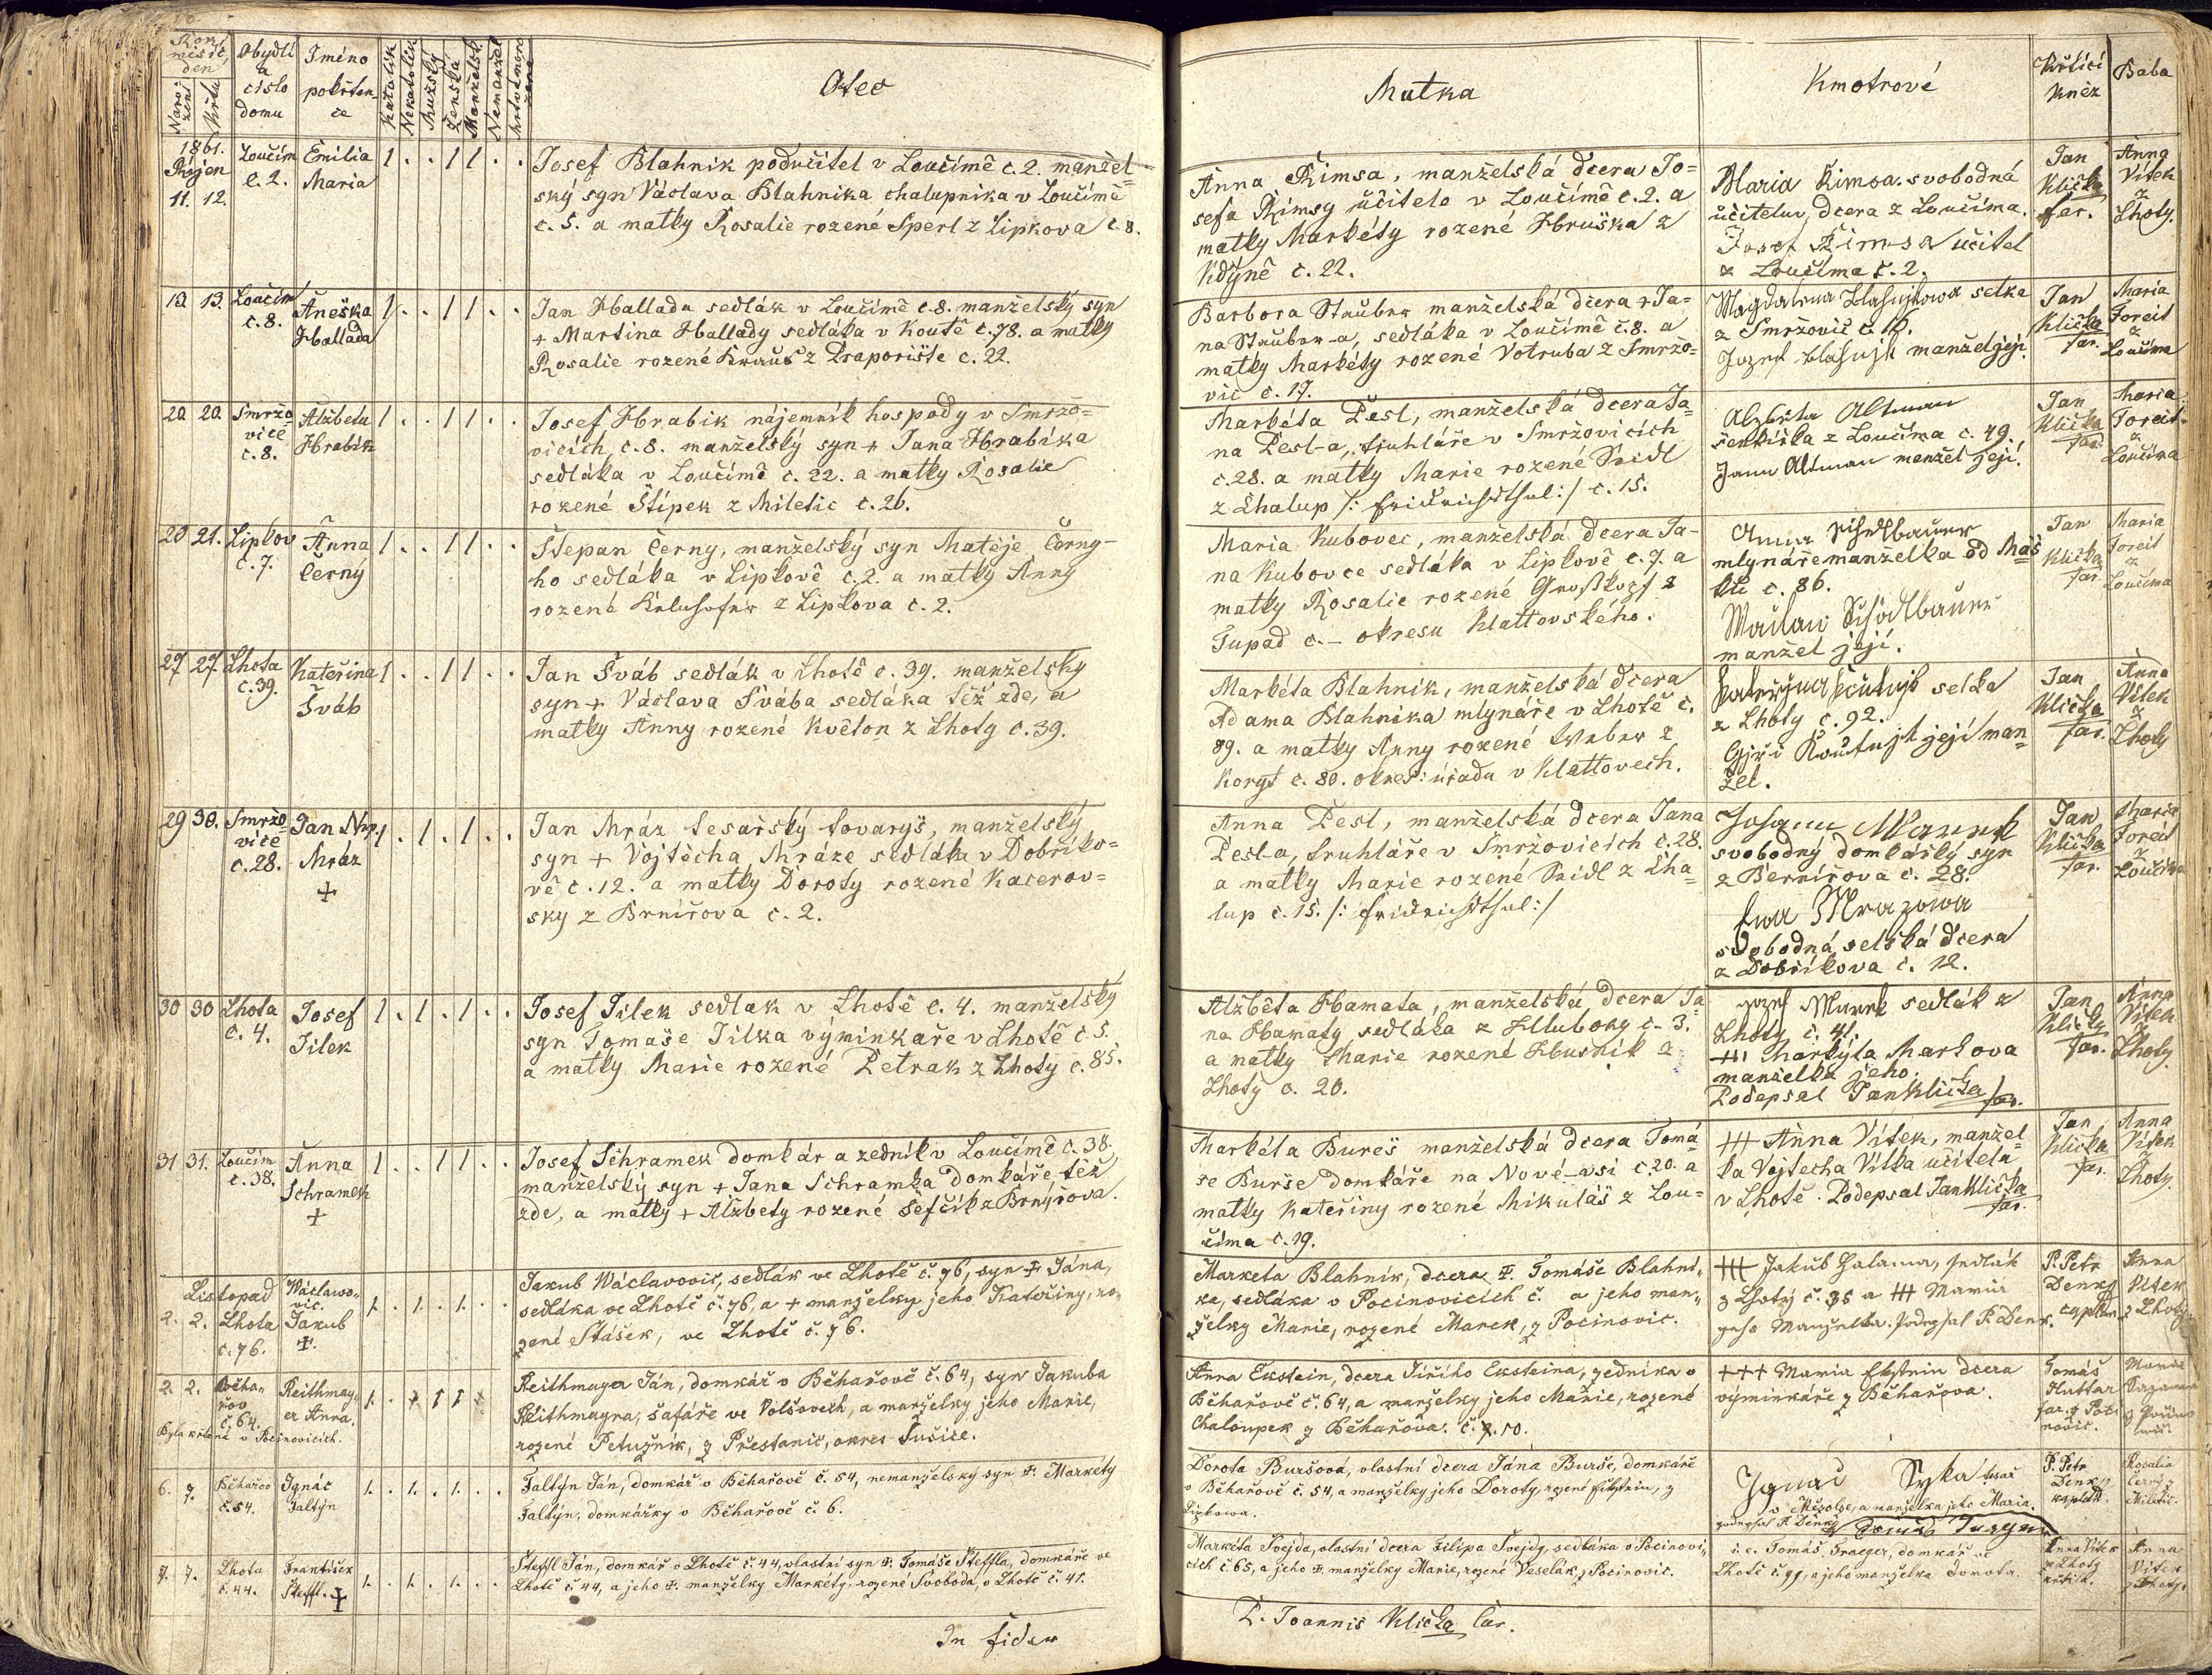 Rok
měsíc,
den
Narození
Křtu
Obydlí
a
císlo
domu
Iméno
pokřten-
ce
Katolík
Nekatolík
Mužský
Ženská
Manželsk.
Nemanžel
Otec
Matka
Kmotrové
Křtící
Kněz
Baba
1861.
Říjen
11. 12.
Loučim
c. 2.
Emilia
Maria
1 . . 1 1 . .
Josef Blahnik podučitel v Loučímě c. 2. manžel-
ský syn Václava Blahnika chalupnika v Loučímě
c. 5. a matky Rosalie rozené Sperl z Lipkova c. 8.
Anna Rimsa, manželská dcera Jo=
sefa Rimsy učitele v Loučímě c. 2. a
matky Markéty rozené Hbruška z
Kdýně c. 22.
Maria Rimsa. svobodná
učitelův, dcera z Loučíma.
Josef Řimsa učitel
z Loučíma č. 2.
Jan
Klička
far.
Anna
Vítek
z
Lhoty.
13. 13.
Loučim
c. 8.
Aneška
Hallada
1 . . 1 1 . .
Jan Hallada sedlák v Loučímě c. 8. manželský syn
+ Martina Hallady sedláka v Koutě c. 78. a matky
Rosalie rozené Kraus z Praporiště c. 22.
Barbora Stauber manželská dcera + Ja=
na Stauber-a, sedláka v Loučímě č. 8. a
matky Markéty rozené Votruba z Smržo=
vic c. 17.
Magdalena selka
z Smržovic č. 16.
Jozef manžel její.
Jan
Klička
far.
Maria
Foreit
z
Loučíma
20. 20.
Smržo
vice
c. 8.
Alžběta
Hrabik
1 . . 1 1 . .
Josef Hrabik nájemník hospody v Smržo=
vicích, c. 8. manželský syn + Jana Hrabíka
sedláka v Loučímě c. 22. a matky Rosalie
rozené Štípek z Miletic c. 26.
Markéta Pesl, manželská dcera Ja=
na Pesl-a, truhláře v Smržovicích
c. 28. a matky Marie rozené Seidl
z Chalup /: Fridrichsthal :/ c. 15.
Alžběta Altman
z Loučíma c. 49.
Jann Altman manžel její.
Jan
Klička
far.
Maria
Foreit
z
Loučíma
20 21.
Lipkov
c. 7.
Anna
Černý
1 . . 1 1 . .
Štepan Černy, manželský syn Matěje Černy-
ho sedláka v Lipkově c. 2. a matky Anny
rozené z Lipkova c. 2.
Maria Kubovec, manželská dcera Ja-
na Kubovce sedláka v Lipkově c. 7. a
matky Rosalie rozené Großkopf z
Tupad c. – okresu Klattovského.
Anna Schedlbauer
mlynáře manželka od
c. 86.
Schödlbauer
manžel její.
Jan
Klička
far.
Maria
Foreit
z
Loučíma
27 27.
Lhota
c. 39.
Kateřina
Šváb
1 . . 1 1 . .
Jan Šváb sedlák v Lhotě c. 39. manželsky
syn + Václava Švába sedláka též zde, a
matky Anny rozené Květon z Lhoty c. 39.
Markéta Blahnik, manželská dcera
Adama Blahnika mlynáře v Lhotě c.
89. a matky Anny rozené Weber z
Koryt c. 80. okres: úřadu v Klattovech.
selka
z Lhoty c. 92.
její man=
žel.
Jan
Klička
far.
Anna
Vítek
z
Lhoty
29 30.
Smržo
vice
c. 28.
Jan Nep.
Mráz
+
1 . 1 . 1 . .
Jan Mráz tesařský tovaryš, manželský
syn + Vojtěcha Mráze sedláka v Dobříko=
vě c. 12. a matky Doroty rozené Kacerov=
sky z Brnířova c. 2.
Anna Pesl, manželská dcera Jana
Pesl-a, truhláře v Smržovicích c. 28.
a matky Marie rozené Seidl z Cha=
lup c. 15. /: Fridrichsthal :/
Johann
svobodný domkářský syn
z Bernířova c. 28.
Ewa Mrazowa
svobodná selská dcera
z Dobříkova c. 12.
Jan
Klička
far.
Maria
Foreit
z
Loučíma
30 30
Lhota
c. 4.
Josef
Jilek
1 . 1 . 1 . .
Josef Jilek sedlak v Lhotě c. 4. manželský
syn Tomaše Jilka výminkaře v Lhotě c. 5.
a matky Marie rozené Petrak z Lhoty c. 85.
Alžběta Hamata, manželská dcera Ja
na Hamaty sedláka z Hluboky c. 3.
a matky Marie rozené z
Lhoty c. 20.
Jozef Marek sedlák z
Lhoty č. 41.
+++ Markyta Markova
manželka jeho.
Podepsal Jan Klička far.
Jan
Klička
far.
Anna
Vítek
z
Lhoty.
31 31.
Loučim
c. 38.
Anna
Schramek
+
1 . . 1 1 . .
Josef Schramek domkár a zedník v Loučímě c. 38.
manželský syn + Jana Schramka domkáře též
zde, a matky + Alžbety rozené Šefčík z Brnýrova.
Markéta Bureš manželská dcera Tomá
še Burše domkáře na Nové-vsi c. 20. a
matky Kateřiny rozené Mikuláš z Lou=
číma c. 19.
+++ Anna Vítek, manžel-
ka Vojtecha Vítka učitela
v Lhotě. Podepsal Jan Klička
far.
Jan
Klička
far.
Anna
Vítek
z
Lhoty.
Listopad
2. 2.
Lhota
c. 76.
Wáclawo-
vic.
Jakub
+.
1. . 1. . 1. .
Jakub Wáclavovič, sedlák ve Lhotě č. 76, syn + Jána,
sedláka ve Lhotě č. 76, a + manželky jeho Kateřiny, ro-
zené Stašek, ve Lhotě č. 76.
Marketa Blahnik, dcera +. Tomáše Blahni-
ka, sedláka v Pocinovicích č. a jeho man-
želky Marie, rozené Marek, z Pocinovic.
+++ Jakub Halama, sedlák
z Lhoty č. 35 a +++ Maria
geho Manželka. Podepsal P. Denk.
P. Petr
Denky
caplan
Anna
Vítek
z Lhoty
2. 2.
Běha-
řov
č. 64.
Reithmay-
er Anna.
Byla křtená v Pocinovicích.
1. . . 1 1 .
Reithmayer Ján, domkář v Běhařově č. 64, syn Jakuba
Reithmayra, šafáře ve Volšovech, a manželky jeho Marie,
rozené Petužník, z Přestanic, okres Sušice.
Anna Eckstein, dcera Jiřího Ecksteina, zedníka v
Běhařově č. 64, a manželky jeho Marie, rozené
Chaloupek z Běhařova. č. 10.
+++ Maria Ekstein dcera
výminkáře z Běhařova.
Tomáš
Huttar
far. z Poci
novic.
Marie
6. 7.
Běhařov
č. 54.
Ignác
Faltýn
1. . 1. . 1. .
Faltýn Ján, domkář v Běhařově č. 54, nemanželsky syn +. Markéty
Faltýn, domkářky v Běhařově č. 6.
Dorota Buršová, vlastní dcera Jána Burše, domkáře
v Běhařově č. 54, a manželky jeho Doroty, rozené Ekstein, z
Lipkowa.
Ignac Syka tesař
v Mězolze, a manželka jeho Maria.
podepsal P. Denky
P. Petr
Denky
kaplan.
Rosalia
Černý z
Miletic.
7. 7.
Lhota
č. 44.
František
Šteffl. +
1. . 1. . 1. .
Šteffl Ján, domkář v Lhotě č. 44, vlastní syn +. Tomáše Šteffla, domkáře ve
Lhotě č. 44, a jeho +. manželky Markéty, rozené Svoboda, v Lhotě č. 41.
Markéta Švejda, vlastní dcera Filipa Švejdy, sedláka v Pocinovi-
cích č. 65, a jeho +. manželky Marie, rozené Veselák z Pocinovic.
i. e. Tomáš Traeger, domkář ve
Lhotě č. 99, a jeho manželka Dorota.
Anna Vítek
z Lhoty
křtila.
Anna
Vítek
z Lhoty.
In fidem
P. Joannis Klička Cur.